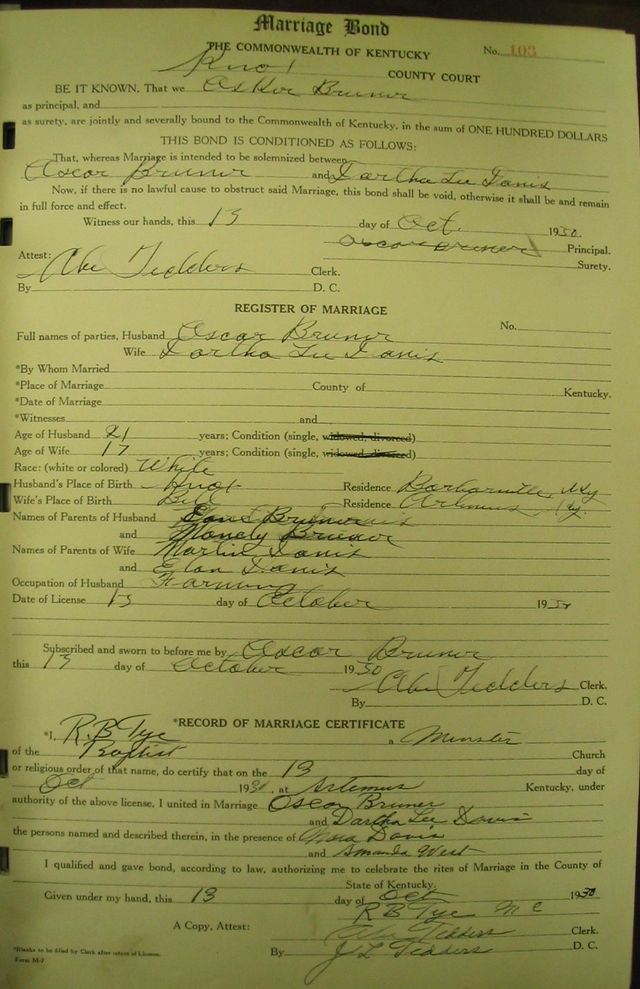 Marriage Bond
THE COMMONWEALTH OF KENTUCKY No. 103
Knox COUNTY COURT
BE IT KNOWN, That we Oskor Bruner
as principal, and
as surety, are jointly and severally bound to the Commonwealth of Kentucky, in the sum of ONE HUNDRED DOLLARS
THIS BOND IS CONDITIONED AS FOLLOWS:
That, whereas Marriage is intended to be solemnized between
Oscar Bruner and Dartha Lee Davis
Now, if there is no lawful cause to obstruct said Marriage, this bond shall be void, otherwise it shall be and remain
in full force and effect.
Witness our hands, this 13 day of Oct. 1930.
Oscar Bruner Principal.
Attest: Surety.
Abe Tedders Clerk.
By D. C.
REGISTER OF MARRIAGE
Full names of parties, Husband Oscar Bruner No.
Wife Dartha Lee Davis
*By Whom Married
*Place of Marriage County of Kentucky.
*Date of Marriage
*Witnesses and
Age of Husband 21 years; Condition (single, widowed, divorced)
Age of Wife 17 years; Condition (single, widowed, divorced)
Race: (white or colored) White
Husband's Place of Birth Knox Residence Barbourville, Ky
Wife's Place of Birth Bell Residence Artemus, Ky.
Names of Parents of Husband Bruner
and Bruner
Names of Parents of Wife Martin Davis
and Davis
Occupation of Husband Farming
Date of License 13 day of October 193
Subscribed and sworn to before me by Oscar Bruner
this 13 day of October 1930
Abe Tedders Clerk.
By D. C.
*RECORD OF MARRIAGE CERTIFICATE
*I, R.B Tye a Minster
of the Baptist Church
or religious order of that name, do certify that on the 13 day of
Oct 1930, at Artemus Kentucky, under
authority of the above license, I united in Marriage Oscar Bruner
and Dartha Lee Davis
the persons named and described therein, in the presence of Davis
and Amanda West
I qualified and gave bond, according to law, authorizing me to celebrate the rites of Marriage in the County of
State of Kentucky.
Given under my hand, this 13 day of Oct 1930
R B Tye M C
A Copy, Attest: Abe Tedders Clerk.
By J L Tedders D. C.
*Blanks to be filled by Clerk after return of License.
Form M-7